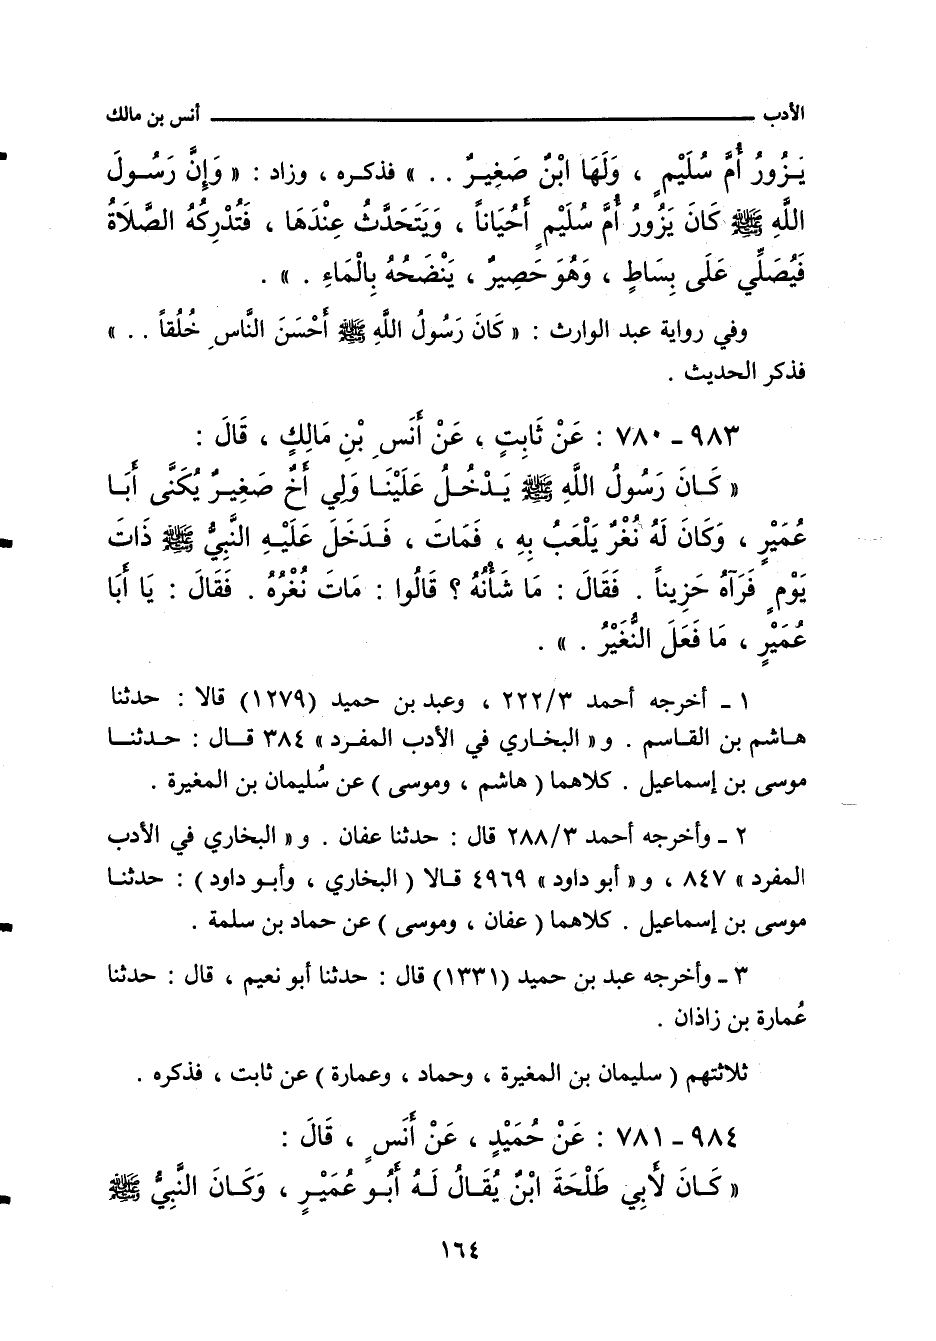 الأدب ــــــــــ أنس بن مالك
يَزُورُ أُمَّ سُلَيْمٍ ، وَلَهَا ابْنٌ صَغِيرٌ . . » فذكره ، وزاد : « وَإِنَّ رَسُولَ
اللَّهِ ﷺ كَانَ يَزُورُ أُمَّ سُلَيْمٍ أَحْيَاناً ، وَيَتَحَدَّثُ عِنْدَهَا ، فَتُدْرِكُهُ الصَّلَاةُ
فَيُصَلِّي عَلَى بِسَاطٍ ، وَهُوَ حَصِيرٌ ، يَنْضَحُهُ بِالْمَاءِ . » .
وفي رواية عبد الوارث : « كَانَ رَسُولُ اللَّهِ ﷺ أَحْسَنَ النَّاسِ خُلُقاً . . »
فذكر الحديث .
٩٨٣ ـ ٧٨٠ : عَنْ ثَابِتٍ ، عَنْ أَنَسِ بْنِ مَالِكٍ ، قَالَ :
« كَانَ رَسُولُ اللَّهِ ﷺ يَدْخُلُ عَلَيْنَا وَلِي أَخٌ صَغِيرٌ يُكَنَّى أَبَا
عُمَيْرٍ ، وَكَانَ لَهُ نُغْرٌ يَلْعَبُ بِهِ ، فَمَاتَ ، فَدَخَلَ عَلَيْهِ النَّبِيُّ ﷺ ذَاتَ
يَوْمٍ فَرَآهُ حَزِيناً . فَقَالَ : مَا شَأْنُهُ ؟ قَالُوا : مَاتَ نُغْرُهُ . فَقَالَ : يَا أَبَا
عُمَيْرٍ ، مَا فَعَلَ النُّغَيْرُ . » .
١ ـ أخرجه أحمد ٢٢٢/٣ ، وعبد بن حميد (١٢٧٩) قالا : حدثنا
هاشم بن القاسم . و « البخاري في الأدب المفرد » ٣٨٤ قال : حدثنا
موسى بن إسماعيل . كلاهما ( هاشم ، وموسى ) عن سُليمان بن المغيرة .
٢ ـ وأخرجه أحمد ٢٨٨/٣ قال : حدثنا عفان . و « البخاري في الأدب
المفرد » ٨٤٧ ، و « أبو داود » ٤٩٦٩ قالا ( البخاري ، وأبو داود ) : حدثنا
موسى بن إسماعيل . كلاهما ( عفان ، وموسى ) عن حماد بن سلمة .
٣ ـ وأخرجه عبد بن حميد (١٣٣١) قال : حدثنا أبو نعيم ، قال : حدثنا
عُمارة بن زاذان .
ثلاثتهم ( سليمان بن المغيرة ، وحماد ، وعمارة ) عن ثابت ، فذكره .
٩٨٤ ـ ٧٨١ : عَنْ حُمَيْدٍ ، عَنْ أَنَسٍ ، قَالَ :
« كَانَ لأَبِي طَلْحَةَ ابْنٌ يُقَالُ لَهُ أَبُو عُمَيْرٍ ، وَكَانَ النَّبِيُّ ﷺ
١٦٤